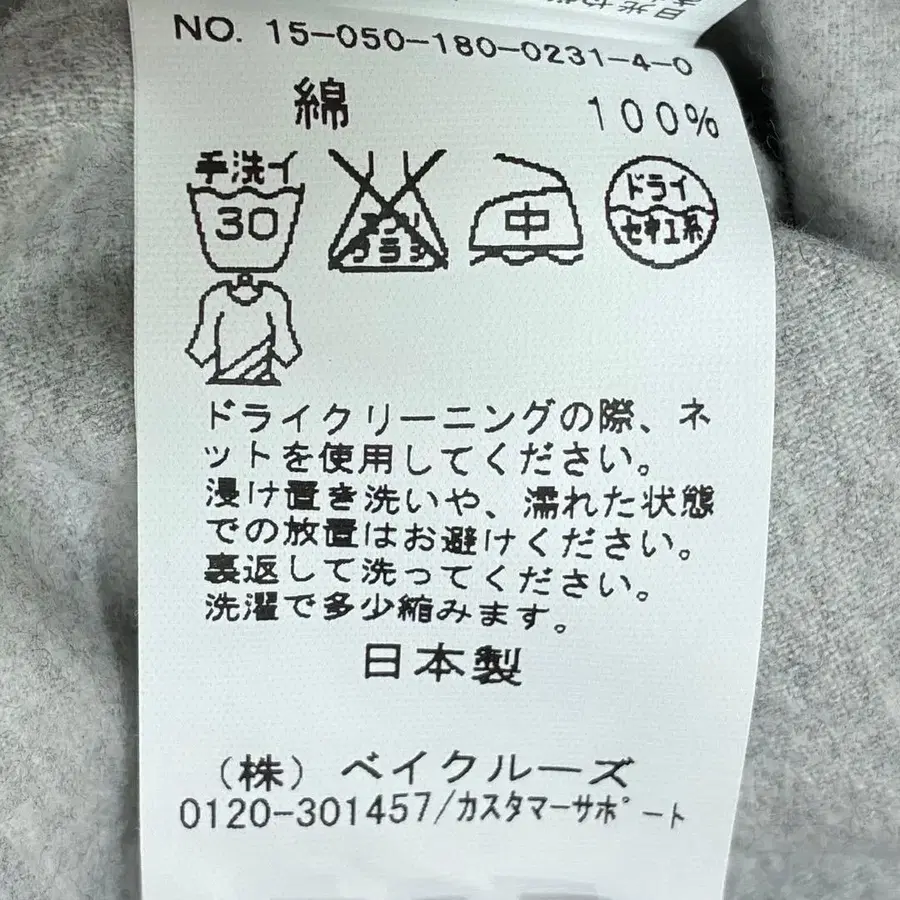 日光や
NO. 15-050-180-0231-4-0
綿 100%
手洗イ 30
エンソ サラシ
中
ドライ セキユ系
ドライクリーニングの際、ネ
ットを使用してください。
浸け置き洗いや、濡れた状態
での放置はお避けください。
裏返して洗ってください。
洗濯で多少縮みます。
日本製
(株) ベイクルーズ
0120-301457/カスタマーサポート